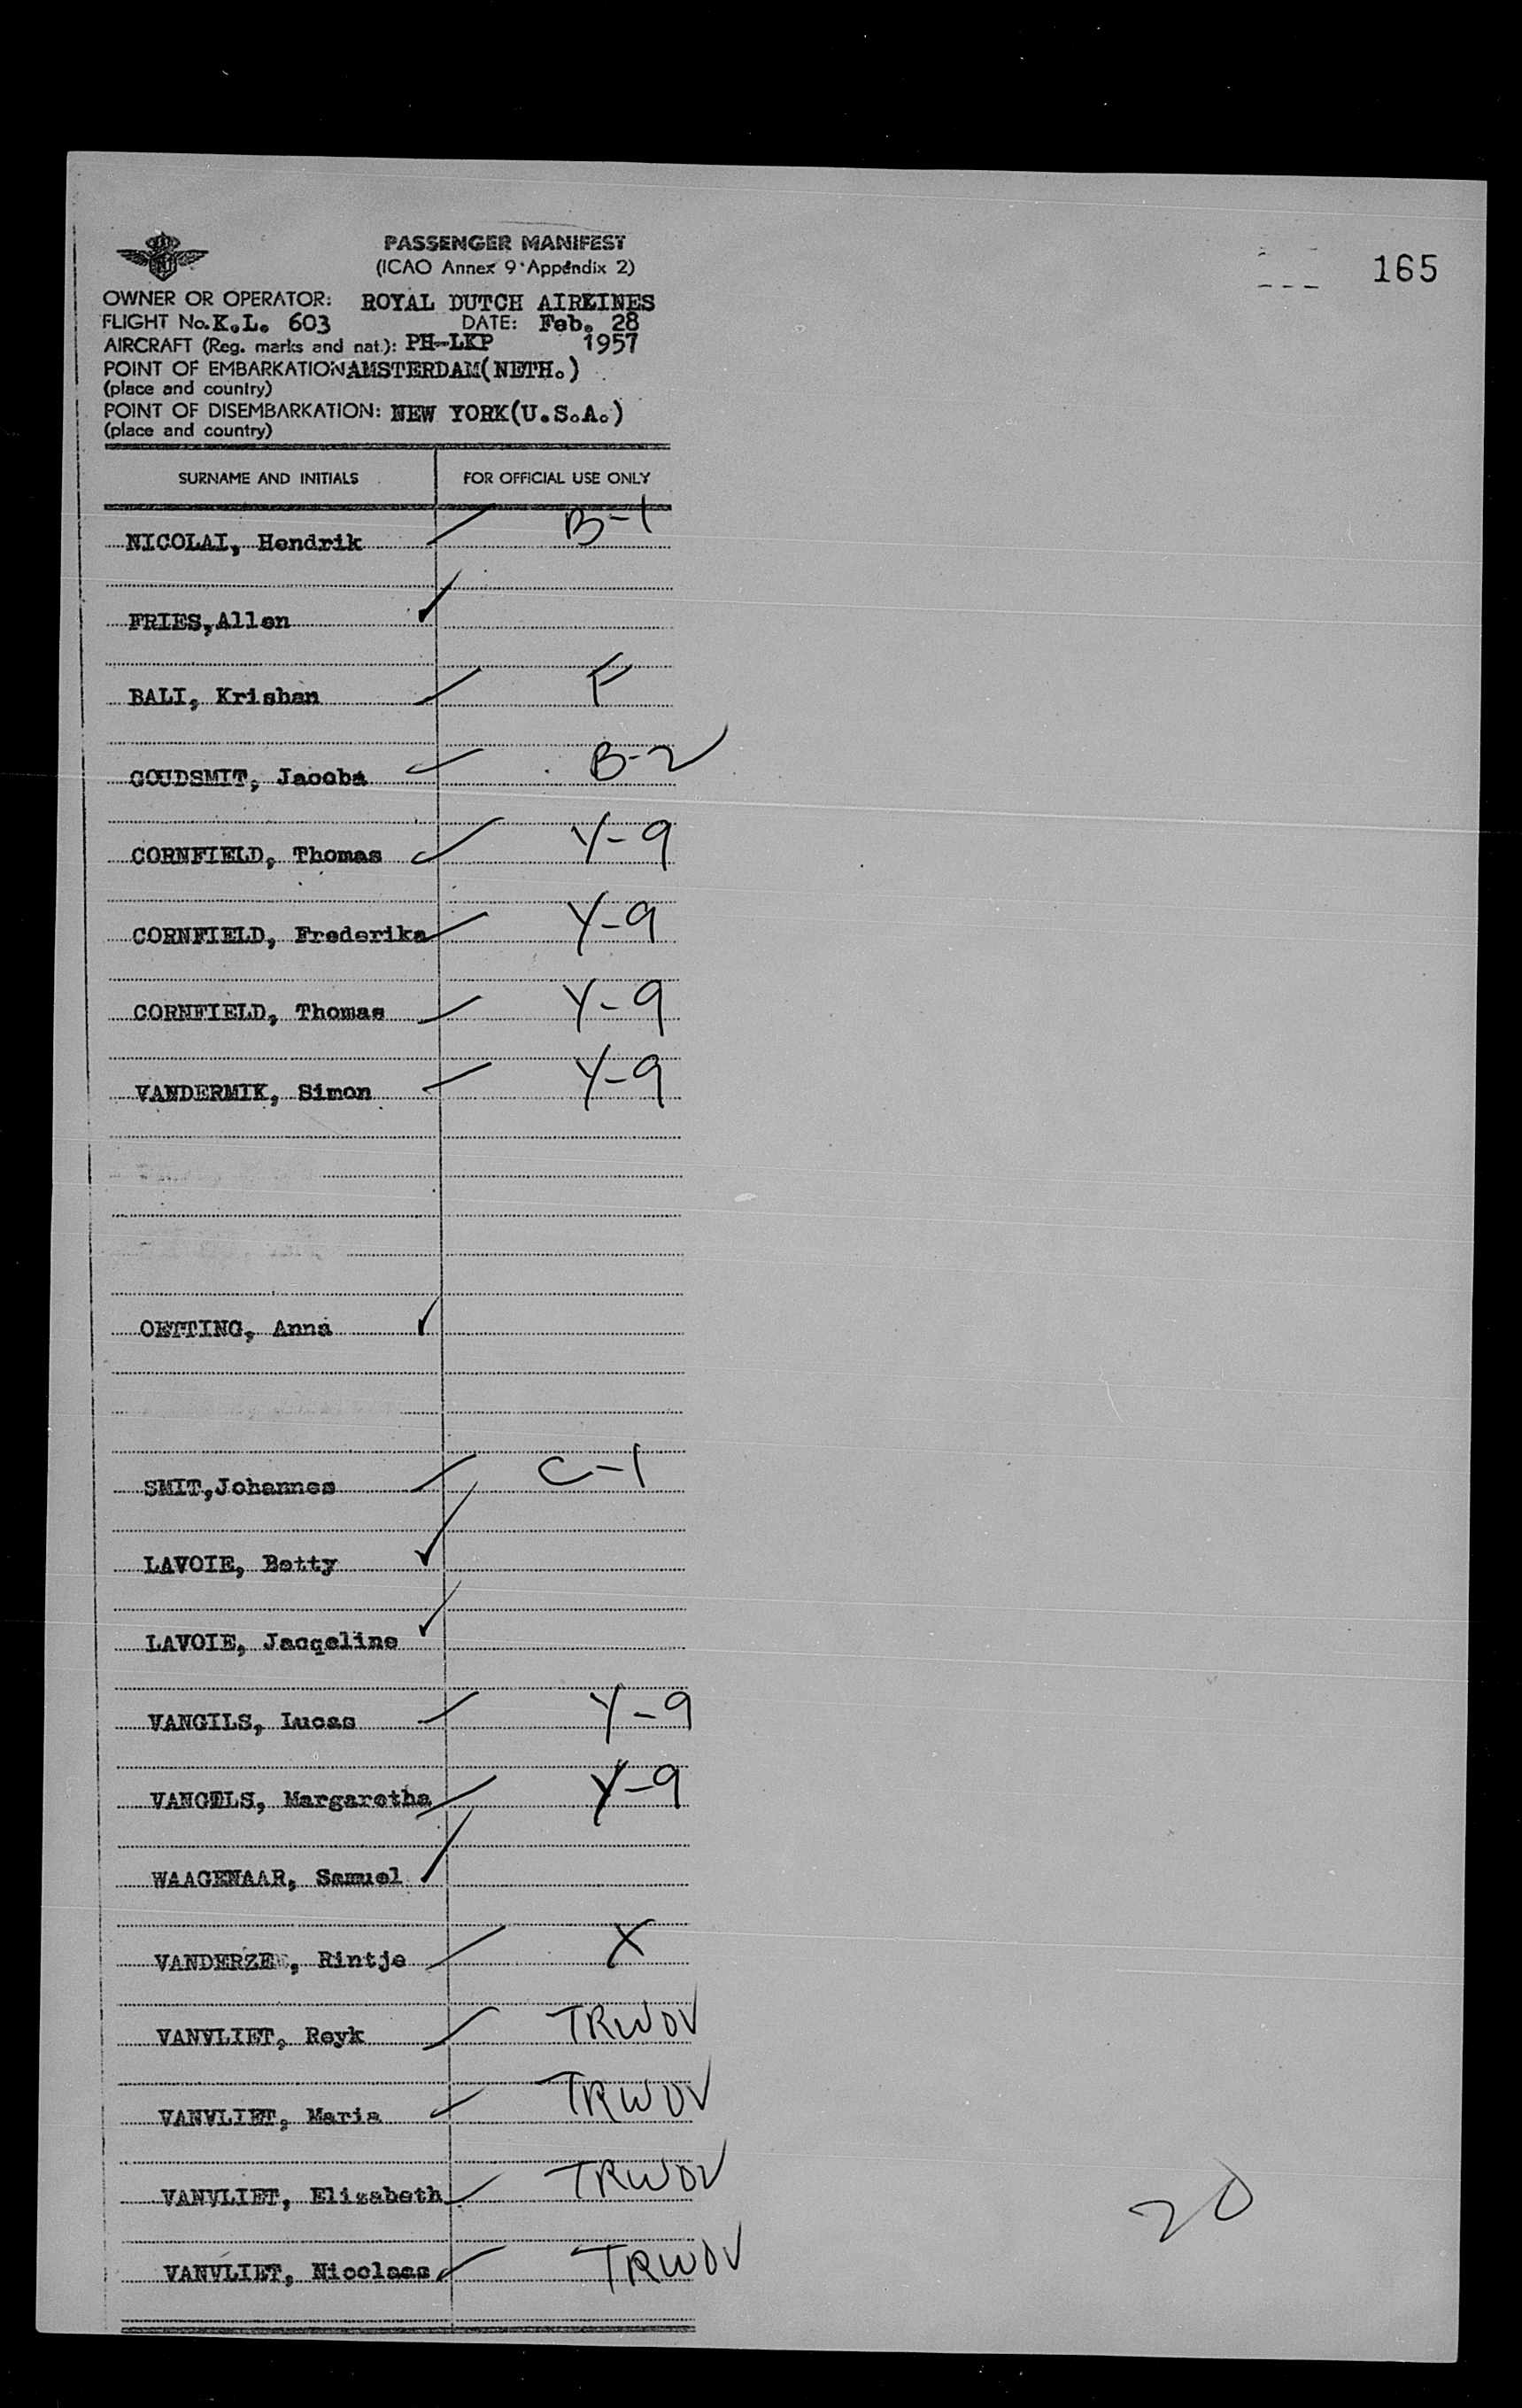 PASSENGER MANIFEST
(ICAO Annex 9 Appendix 2)
165
OWNER OR OPERATOR: ROYAL DUTCH AIRLINES
FLIGHT No. K.L. 603 DATE: Feb. 28
AIRCRAFT (Reg. marks and nat.): PH-LKP 1957
POINT OF EMBARKATION AMSTERDAM(NETH.)
(place and country)
POINT OF DISEMBARKATION: NEW YORK(U.S.A.)
(place and country)
SURNAME AND INITIALS FOR OFFICIAL USE ONLY
NICOLAI, Hendrik B-1
FRIES,Allen
BALI, Krishan F
GOUDSMIT, Jacoba B-2
CORNFIELD, Thomas Y-9
CORNFIELD, Frederika Y-9
CORNFIELD, Thomas Y-9
VANDERMIK, Simon Y-9
OETTING, Anna
SMIT,Johannes C-1
LAVOIE, Betty
LAVOIE, Jacqeline
VANGILS, Lucas Y-9
VANGELS, Margaretha Y-9
WAAGENAAR, Samuel
VANDERZEE, Rintje X
VANVLIET, Reyk TRWOV
VANVLIET, Maria TRWOV
VANVLIET, Elizabeth TRWOV
VANVLIET, Nicolaas TRWOV
20